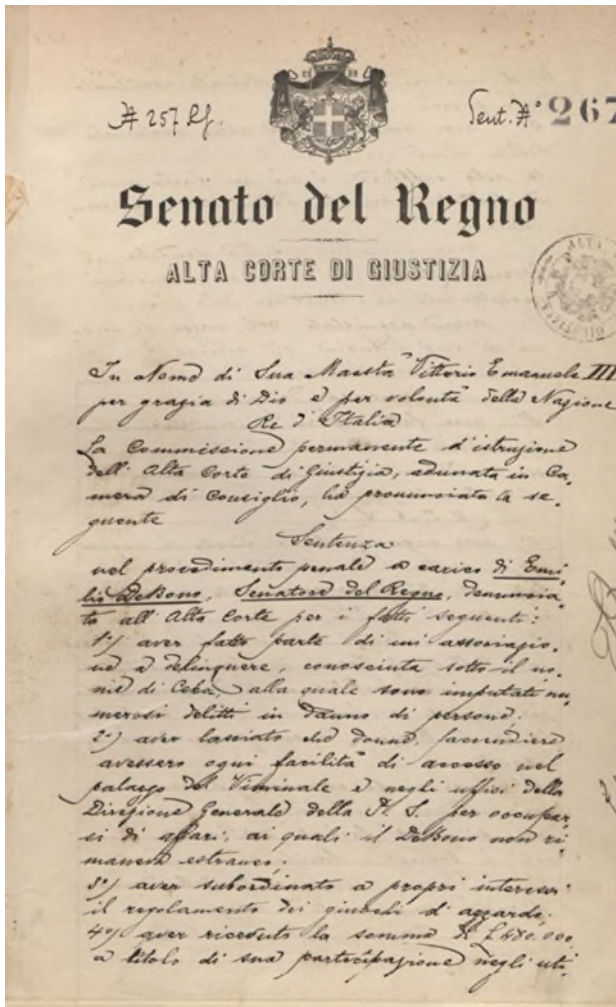 # 257 Rg.
Sent. N° 267
Senato del Regno
ALTA CORTE DI GIUSTIZIA
In Nome di Sua Maestà Vittorio Emanuele III
per grazia di Dio e per volontà della Nazione
Re d'Italia
La Commissione permanente d'istruzione
dell'Alta Corte di Giustizia, adunata in Ca-
mera di Consiglio, ha pronunciato la se-
guente
Sentenza
nel procedimento penale a carico di Emi-
lio DeBono, Senatore del Regno, denuncia-
to all'Alta Corte per i fatti seguenti:
1°) aver fatto parte di un'associazio-
ne a delinquere, conosciuta sotto il no-
me di Ceka, alla quale sono imputati nu-
merosi delitti in danno di persone.
2°) aver lasciato che donne faccendiere
avessero ogni facilità di accesso nel
palazzo del Viminale e negli uffici della
Direzione Generale della P. S. per occupar-
si di affari, ai quali il DeBono non ri-
maneva estraneo;
3°) aver subordinato a propri interessi
il regolamento dei giuochi d'azzardo;
4°) aver ricevuto la somma di £ 480.000
a titolo di sua partecipazione negli uti-